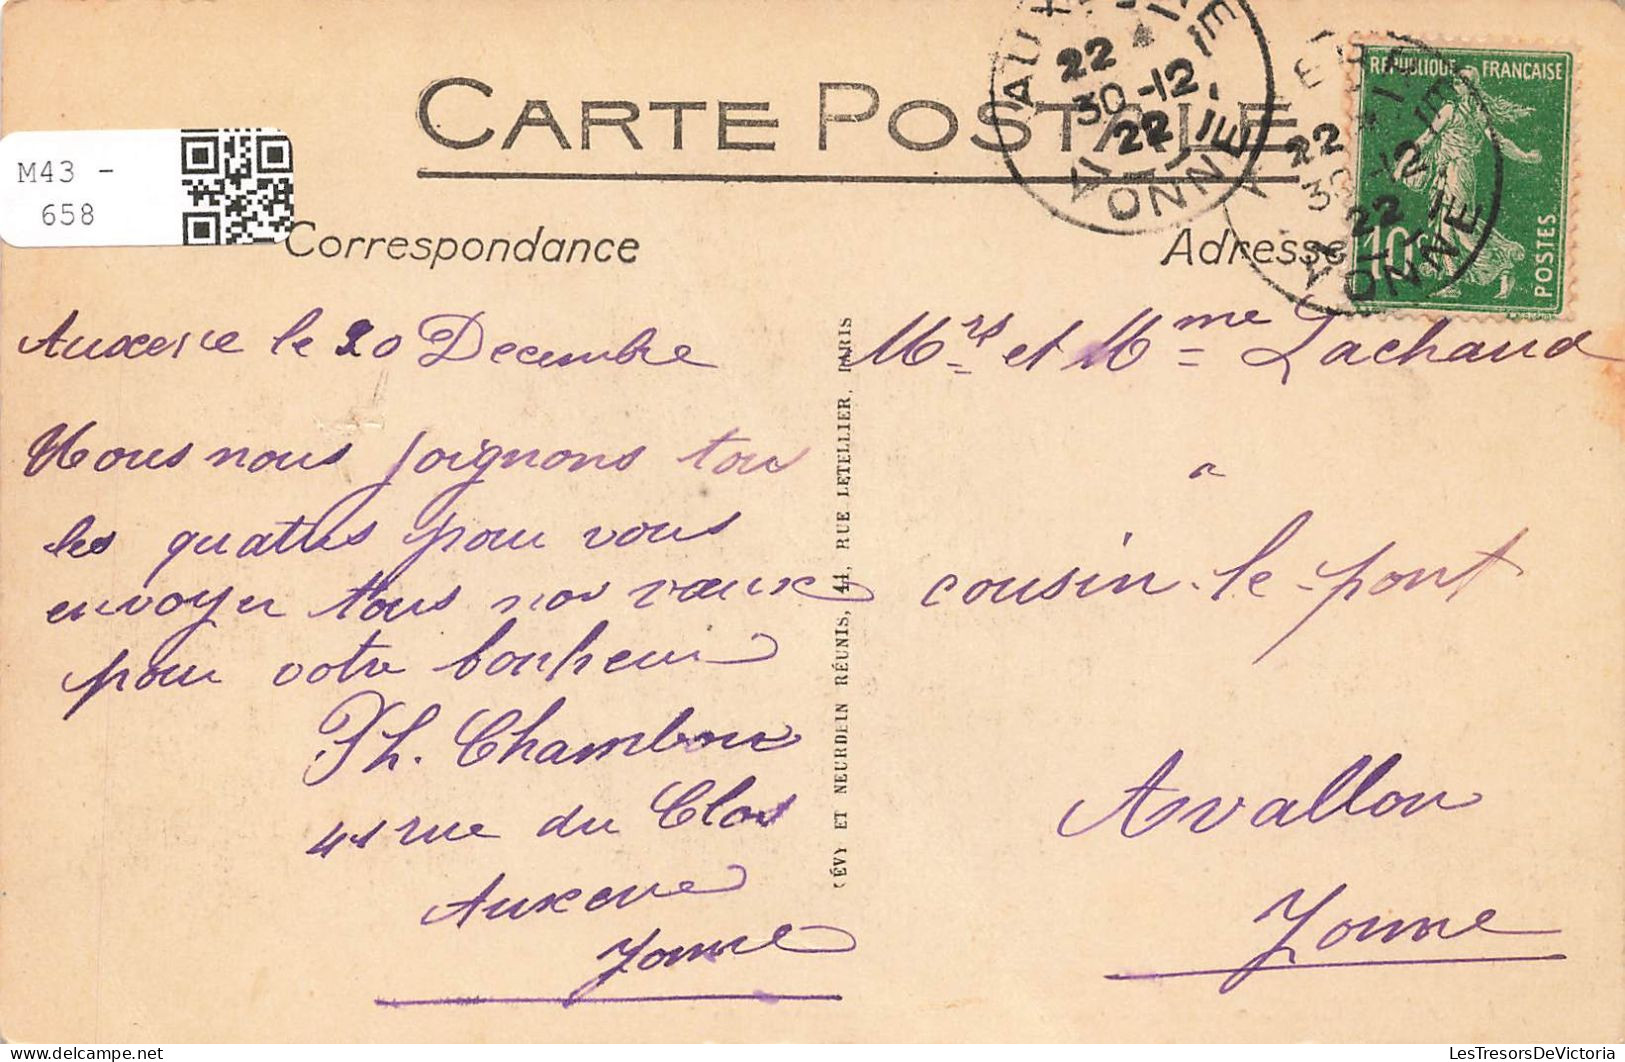 CARTE POSTALE
M43 -
658
RÉPUBLIQUE FRANÇAISE
10c
POSTES
22 *
30-12
22
YONNE
22 *
30-12
22
YONNE
Correspondance
Auxerre le 20 Decembre
Nous nous joignons tou
les quatres pour vous
envoyer tous nos vœux
pour votre bonheur
Ph. Chambon
41 rue du Clos
Auxerre
Yonne
LÉVY ET NEURDEIN RÉUNIS, 44, RUE LETELLIER, PARIS
Adresse
Mrs et Mme Lachaud
a
cousin-le-pont
Avallon
Yonne
LesTresorsDeVictoria